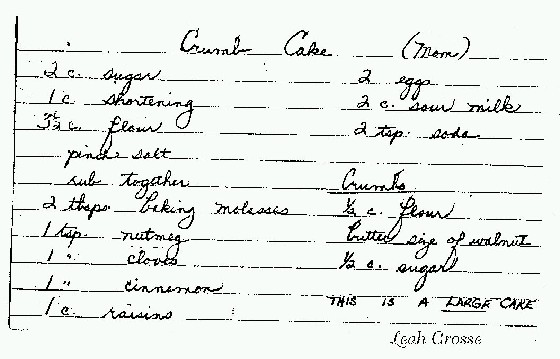 Crumb Cake (Mom)
2 c. sugar
1 c shortening
3½ c. flour
pinch salt
rub together
2 tbsps baking molasses
1 tsp. nutmeg
1 " cloves
1 " cinnamon
1 c. raisins
2 eggs
2 c. sour milk
2 tsp. soda
Crumbs
½ c. flour
butter size of walnut
½ c. sugar
THIS IS A LARGE CAKE
Leah Crosse